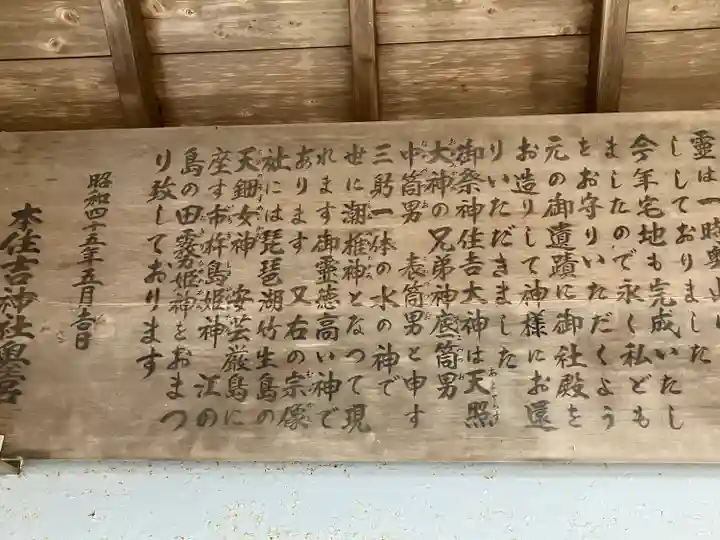 靈は一時奥山に
ししておりました
今年宅地も完成いたし
ましたので永く私ども
をお守りいただくよう
元の御遺蹟に御社殿を
お造りして神様にお還
りいただきました
御祭神住吉大神は天照
大神の兄弟神底筒男
中筒男 表筒男と申す
三躬一体の水の神で
世に潮推神となつて現
れます御靈徳高い神で
あります 又右の宗像
社には琵琶湖竹生島の
天鈿女神 安芸厳島に
座す市杵島姫神 江の
島の田霧姫神をおまつ
り致しております
昭和四十五年五月吉日
本住吉神社奥宮